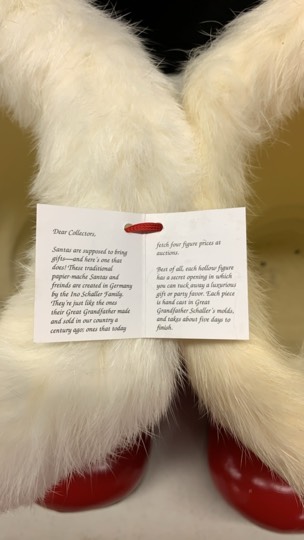 Dear Collectors,
Santas are supposed to bring
gifts—and here's one that
does! These traditional
papier mache Santas and
freinds are created in Germany
by the Ino Schaller Family.
They're just like the ones
their Great Grandfather made
and sold in our country a
century ago; ones that today
fetch four figure prices at
auctions.
Best of all, each hollow figure
has a secret opening in which
you can tuck away a luxurious
gift or party favor. Each piece
is hand cast in Great
Grandfather Schaller's molds,
and takes about five days to
finish.